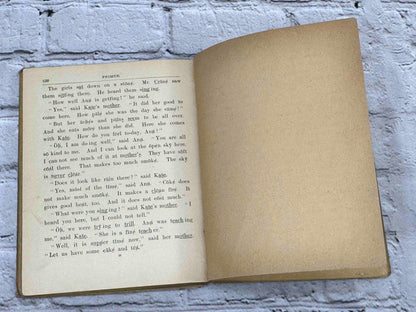 120 PRIMER.
The girls sat down on a stone. Mr. Crane saw
them sitting there. He heard them singing.
"How well Ann is getting!" he said.
"Yes," said Kate's mother. "It did her good to
come here. How pale she was the day she came!"
"But her aches and pains seem to be all over.
And she eats nicely than she did. Here she comes
with Kate. How do you feel to-day, Ann?"
"Oh, I am doing well," said Ann. "You are all
so kind to me. And I can look at the open sky here.
I can not see much of it at mother's. They have soft
coal there. That makes too much smoke. The sky
is never clear."
"Does it look like rain there?" said Kate.
"Yes, most of the time," said Ann. "Coke does
not make much smoke. It makes a clean fire. It
gives good heat, too. And it does not cost much."
"What were you singing?" said Kate's mother. "I
heard you here, but I could not tell."
"Oh, we were trying to trill. Ann was teaching
me," said Kate. "She is a fine teacher."
"Well, it is supper time now," said her mother.
"Let us have some cake and tea."